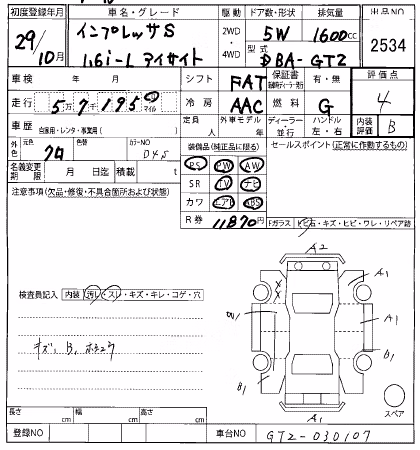 初度登録年月 車名・グレード 駆動 ドア数・形状 排気量 出品NO
29/10月 インプレッサS 2WD・4WD 5W 1600cc 2534
1.6i-L アイサイト 型式 DBA-GT2
車検 年 月 シフト FAT 保証書 有・無 評価点
走行 57,195 km マイル 冷房 AAC 燃料 G 4
車歴 自家用・レンタ・事業用( ) 定員 人 外車モデル 年 ディーラー 並行 ハンドル 左・右 内装評価 B
外色 元色 クロ 色替 カラーNO D4S 装備品(純正品に限る) セールスポイント(正常に作動するもの)
名義変更期限 月 日迄 積載 t PS PW AW
注意事項(欠品・修復・不具合箇所および状態) SR TV ナビ
カワ エアB ABS
R券 11870円 Fガラス トビ石・キズ・ヒビ・ワレ・リペア跡
A2
A1
検査員記入 内装 汚レ・スレ・キズ・キレ・コゲ・穴
A1
キズ、B、ホシュウ
B1
B1
スペア
長さ cm 幅 cm 高さ cm
A1
登録NO 車台NO GT2-030107